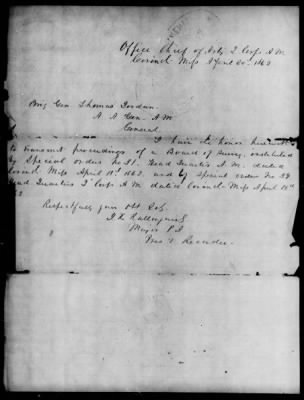 Office Chief of Arty 2 Corps A.M.
Corinth Miss April 20th 1862
Brig Gen. Thomas Jordan
A. A. Gen. A.M.
General
I have the honor herewith
to transmit proceedings of a Board of Survey, constituted
by Special order No 51. Head Quarters A. M. dated
Corinth Miss April 18th 1862. and by Special order No
Head Quarters 2d Corps A M dated Corinth Miss April 18th
Respectfully your obt Svt
Major P.